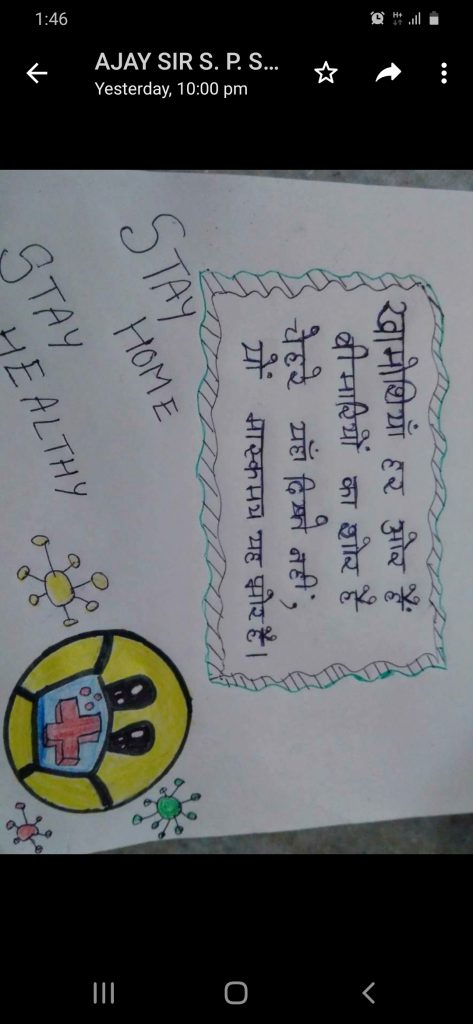 1:46
AJAY SIR S. P. S...
Yesterday, 10:00 pm
खामोशियाँ हर ओर हैं
बीमारियों का छोर है
चेहरे यहाँ दिखे नहीं,
यों मास्कमय यह दौर है।
STAY HOME
STAY HEALTHY